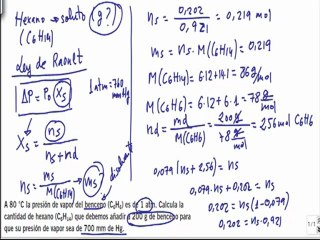 Hexeno → soluto ¿g?
(C₆H14)
Ley de Raoult
ΔP = P₀ Xs
1 atm = 760 mmHg
Xs = ns / ns + nd
ns = ms / M(C₆H14)
disolvente
ns = 0,202 / 0,921 = 0,219 mol
ms = ns · M(C₆H14) = 0,219
M(C₆H14) = 6·12 + 14·1 = 86 g/mol
M(C₆H6) = 6·12 + 6·1 = 78 g/mol
nd = md / M(C₆H6) = 200 g / 78 g/mol = 2,56 mol C₆H6
0,079 (ns + 2,56) = ns
0,079 · ns + 0,202 = ns
0,202 = ns (1 - 0,079)
0,202 = ns · 0,921
A 80 °C la presión de vapor del benceno (C₆H₆) es de 1 atm. Calcula la
cantidad de hexano (C₆H₁₄) que debemos añadir a 200 g de benceno para
que su presión de vapor sea de 700 mm de Hg.